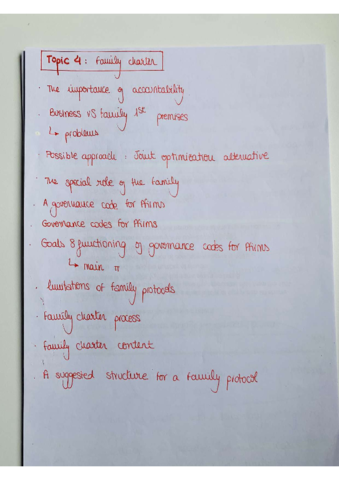 Topic 4: family charter
· The importance of accountability
· Business VS family 1st premises
↳ problems
· Possible approach: Joint optimization alternative
· The special role of the family
· A governance code for PFIMS
· Governance codes for PFIMS
· Goals & functioning of governance codes for PFIMS
↳ main π
· limitations of family protocols
· family charter process
· family charter content
· A suggested structure for a family protocol